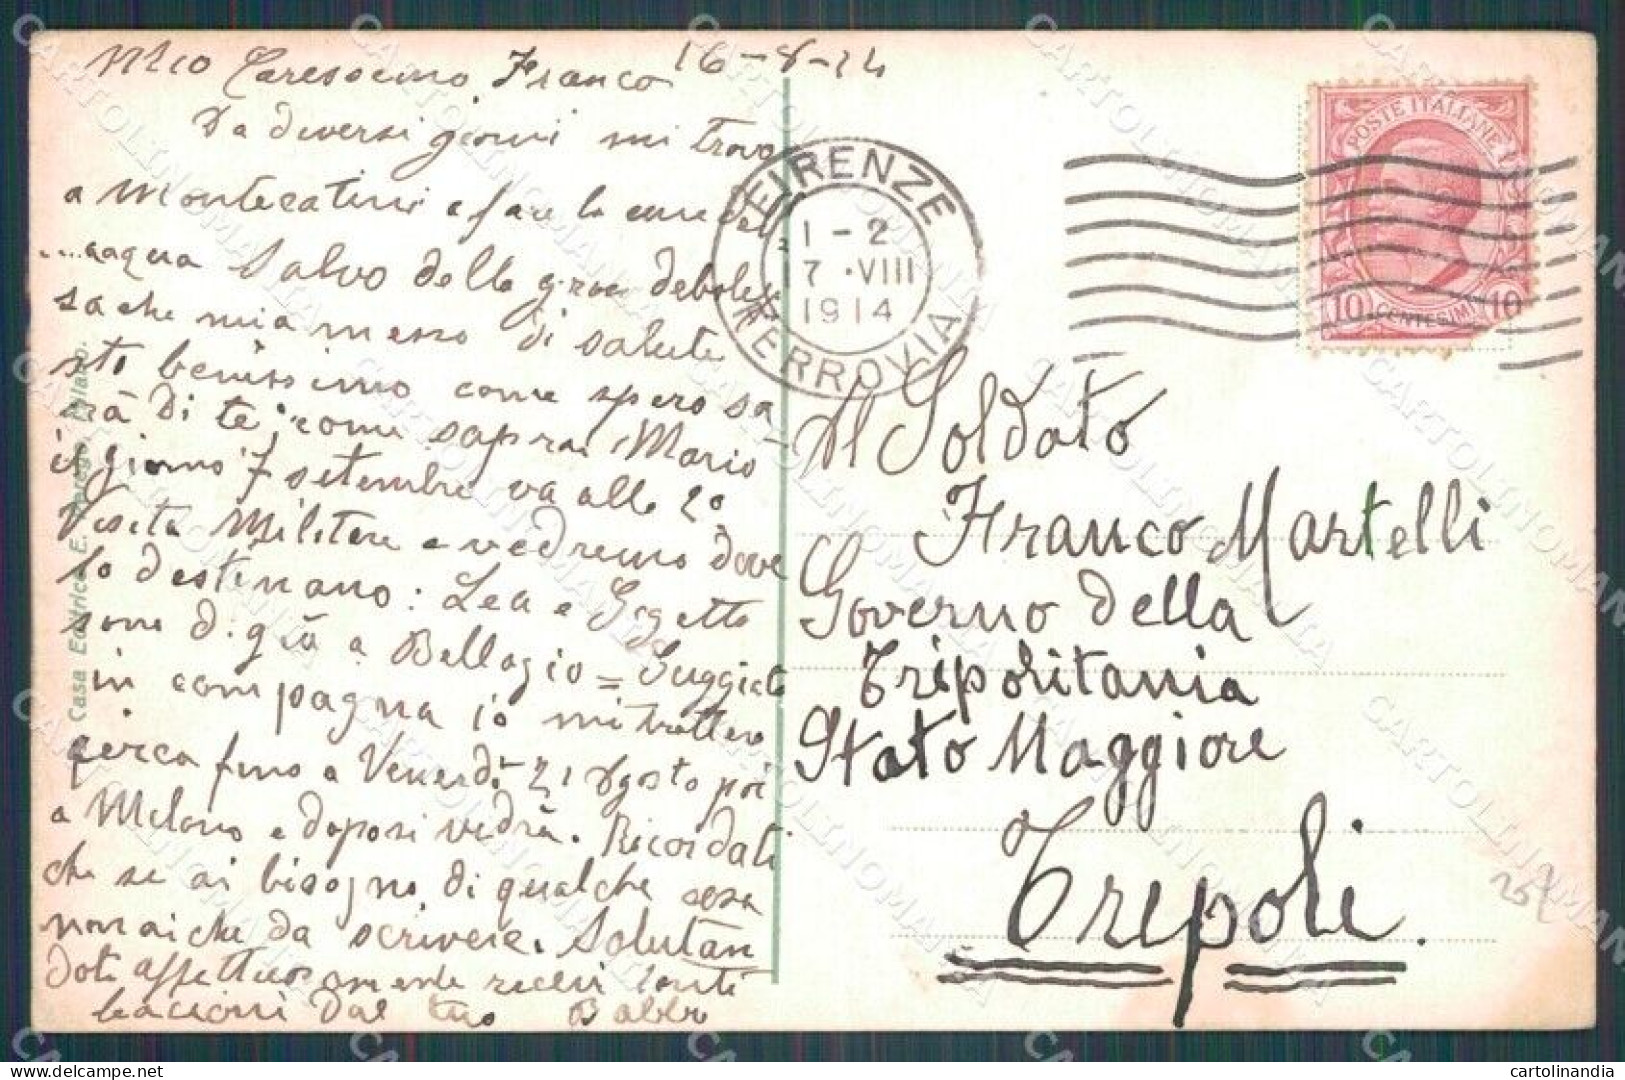 Mio Carissimo Franco 16-8-14
Da diversi giorni mi trovo
a Montecatini a fare la cura del
...aaqua Salvo della gran deboles
sa che mia messo di salute
sto benissimo come spero sa-
rà di te, come saprai Mario
il giorno 7 setembre va alla 2a
Visita Militare e vedremo dove
lo destinano: Lea e Gigetto
sono di già a Bellagio =
in compagna io mi trattero
qerca fino a Venerdì 21 Agosto poi
a Milano e dopo si vedrà. Ricordati
che se ai bisogno di qualche cosa
non ai che da scrivere. Salutan
doti affettuosamente ricevi tanti
bacioni dal tuo Babbo
Casa Editrice E. Milano.
FIRENZE
1-2
17 ·VIII
1914
FERROVIA
POSTE ITALIANE
10 CENTESIMI 10
Al Soldato
Franco Martelli
Governo della
Tripolitania
Stato Maggiore
Tripoli.
CARTOLINOMANIA
cartolinandia